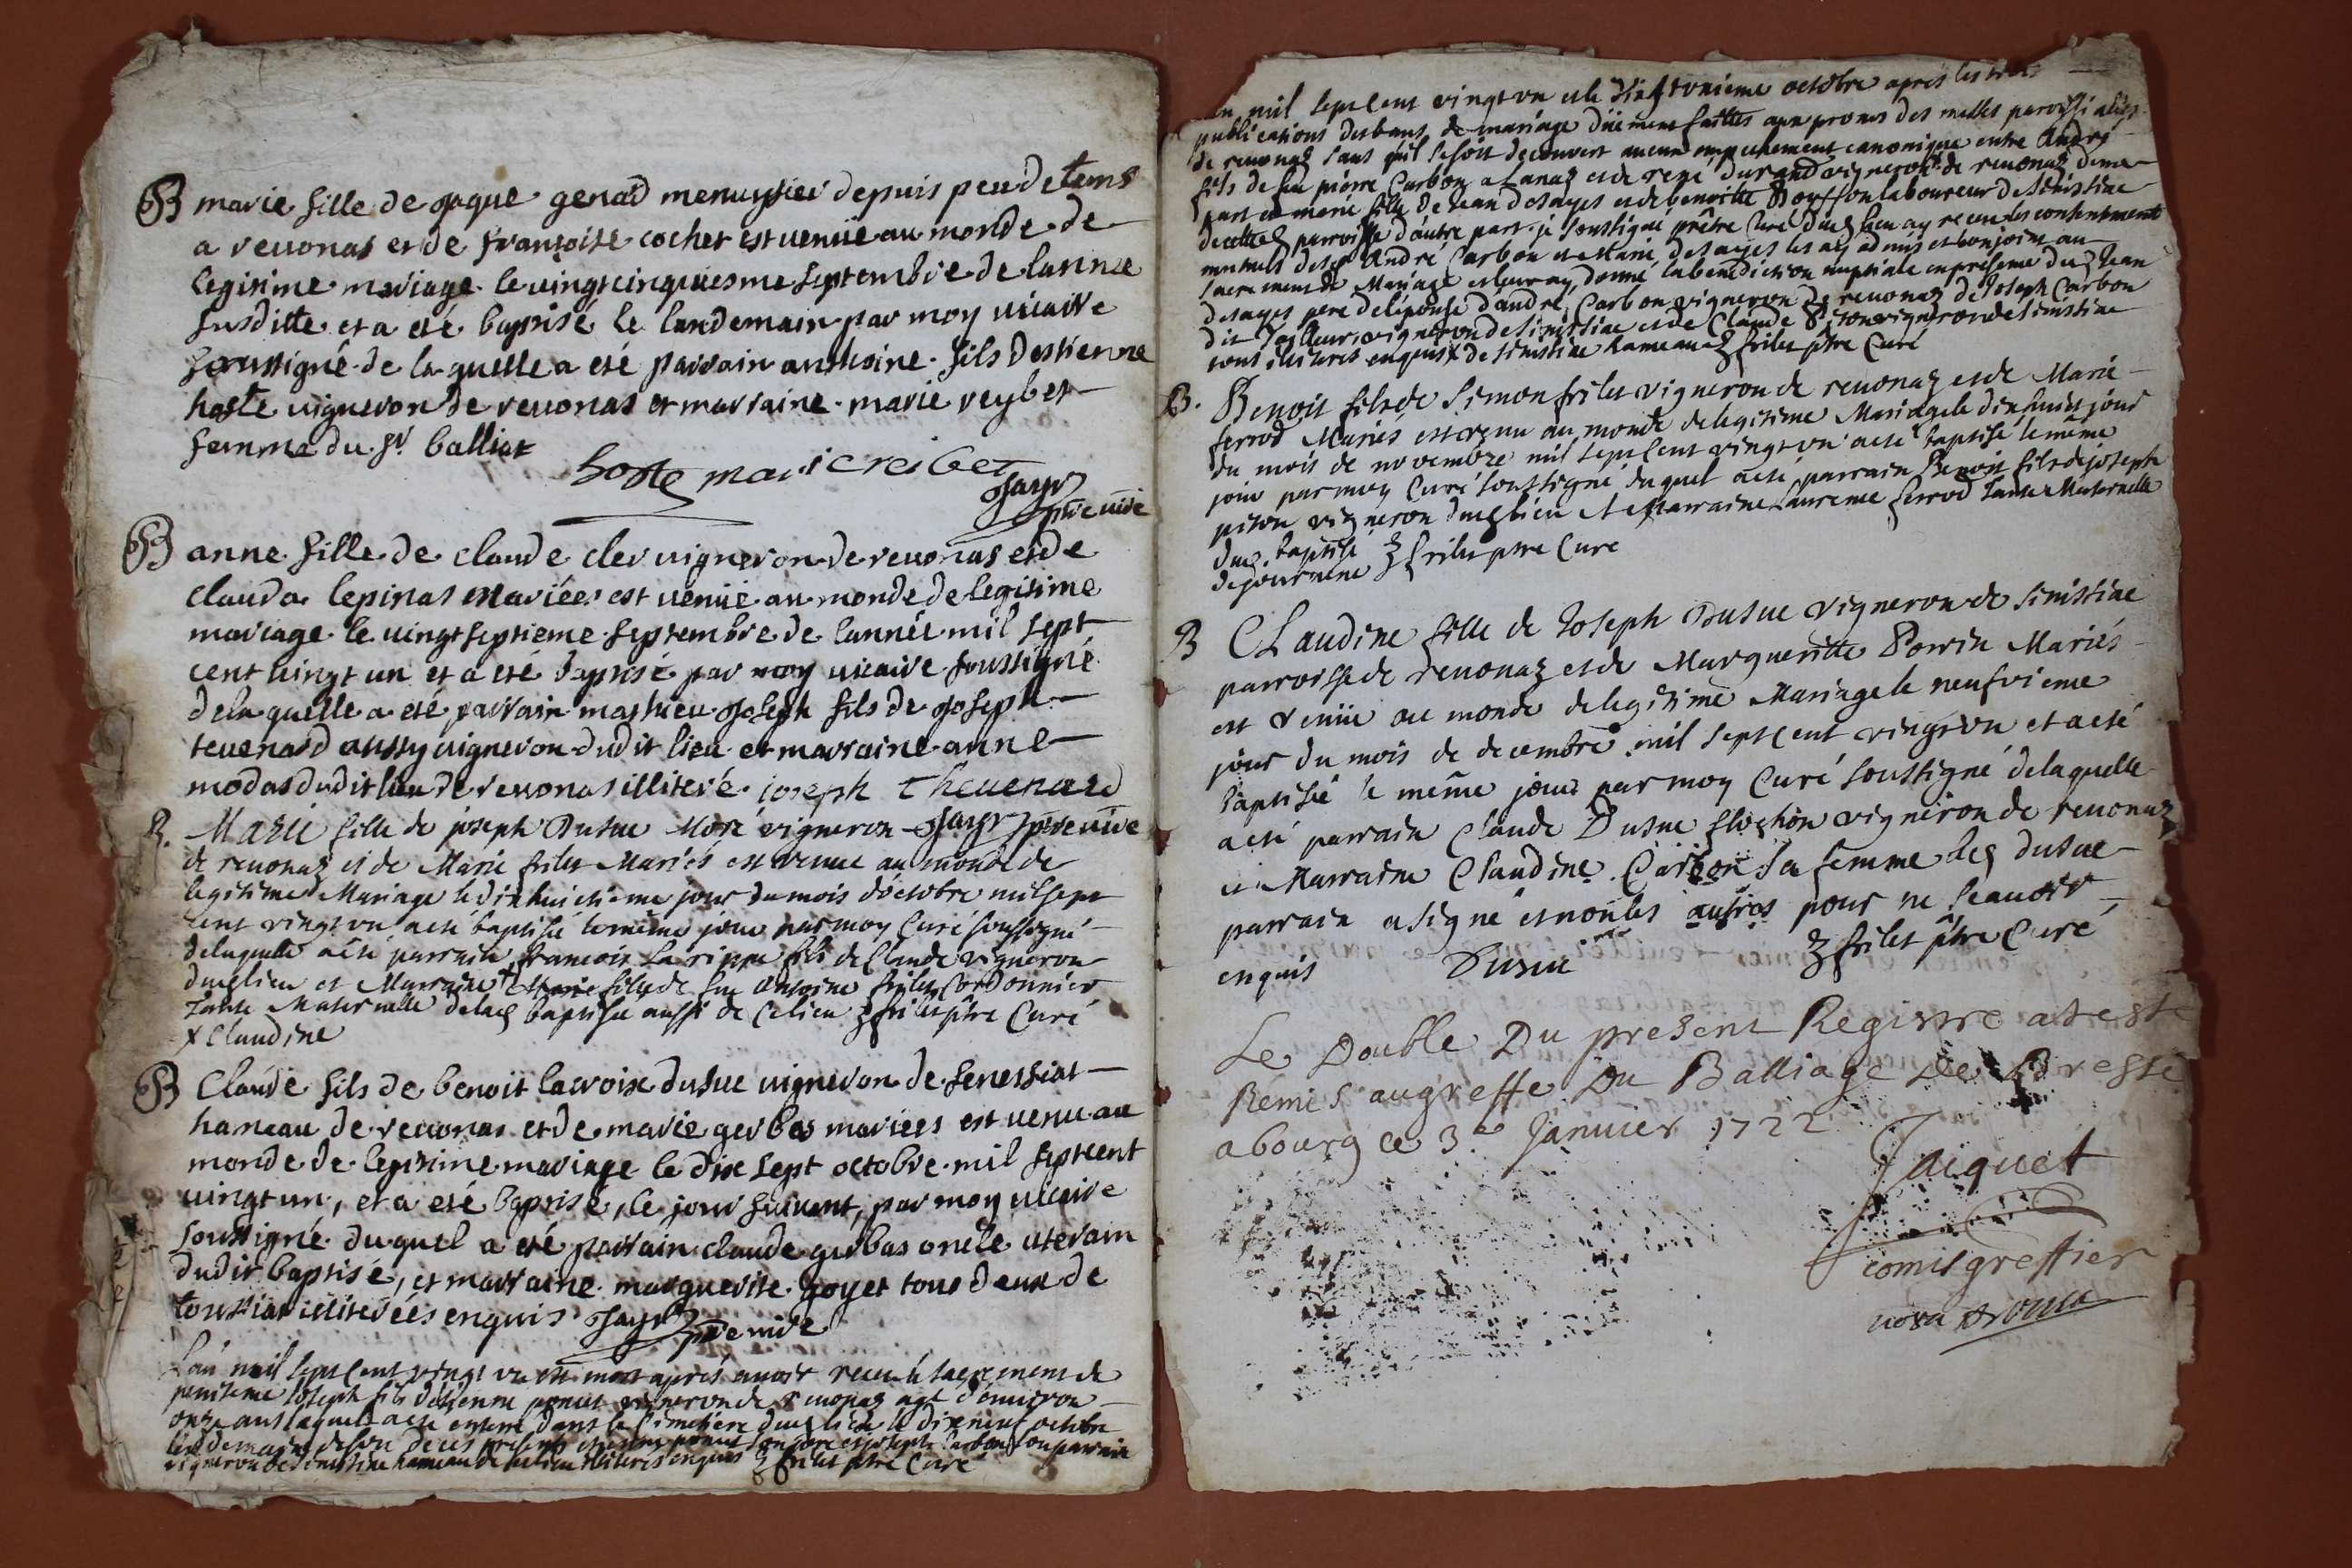 B marie fille de Jaque genod menuysier depuis peu de tems
a revonas et de françoise cochet est venüe au monde de
legitime mariage le vingt cinquiesme septembre de lannee
susditte et a eté baptisé le landemain par moy vicaire
soussigné de laquelle a eté parrain anthoine fils destienne
hoste vigneron de revonas et marraine marie reybet
femme du Sr. balliat
hoste marie reibet
Jayr
ptre vicre
B anne fille de claude cler vigneron de revonas et de
clauda lepinas mariées est venüe au monde de legitime
mariage le vingt septieme septembre de lannéé mil sept
cent vingt un et a eté baptisé par moy vicaire soussigné
de laquelle a eté parrain mathieu Joseph fils de Joseph
tevenard aussy vigneron dudit lieu et marraine anne
modas dudit lieu de revonas illiteré. joseph thevenard
Jayr ptre vicre
B. Marie fille de joseph Dusuc Moré vigneron
de revonaz et de Marie frilet Mariés est venue au monde de
legitime Mariage le dixhuictieme jour du mois d'octobre mil sept
cent vingt vn a eté baptisée le même jour par moy Curé soussigné
de laquelle a eté parrain francois Larippe fils de Claude vigneron
dudlieu et Marraine + Marie fille de feu Antoine frilet Cordonnier
Tante Maternelle de lad baptisée aussi de ce lieu frilet ptre Curé
x Claudine
B Claude fils de benoit lacroix dusuc vigneron de senessiat
hameau de revonas et de marie gerbas mariees est venu au
monde de legitime mariage le dix sept octobre mil sept cent
vingt un, et a eté baptisé, le jour suivant, par moy vicaire
soussigné duquel a eté parrain claude gerbas oncle uterain
dudit baptisé, et marraine marguerite goyet tous deux de
toussiat illiterées enquis Jayr ptre vicre
L'an mil sept cent vingt vn est mort aprés avoir receu le sacrement de
penitence Joseph fils d'etienne vigneron de revonaz agé d'environ
onze ans lequel a eté enterré dans le Cimetiere dud lieu le dixneuf octobre
lendemain de son deces presents son pere et joseph Carbon son parrain
vigneron de sinistiac hameau de ce lieu illiterés enquis frilet ptre Curé
L'an mil sept cent vingt vn et le vingt vnieme octobre aprés les trois
publications des bans de mariage düement faittes aux prones des messes paroissiales
de revonaz sans qu'il se soit decouvert aucun empechement canonique entre André
fils de feu pierre Carbon et de durand vigneron de revonaz d'une
part et marie fille de Jean desages et de benoitte Bouffon laboureur de sinistiac
de cette parroisse d'autre part. je soussigné prêtre Curé dud lieu ay receu les consentements
mutuels desd André Carbon et Marie desages les ay admis et conjoint au
sacrement de Mariage et leur ay donné la benediction nuptiale en presence dud Jean
desages pere de l'epouse d'andré Carbon vigneron de revonaz de Joseph Carbon
dit Tailleur vigneron de sinistiac et de Claude Piton vigneron de sinistiac
tous illiterés enquis de sinistiac hameau frilet ptre Curé
B. Benoit fils de Simon frilet vigneron de revonaz et de Marie
ferrod Mariés est venu au monde de legitime Mariage le dixhuict jour
du mois de novembre mil sept cent vingt vn a eté baptisé le même
jour par moy Curé soussigné duquel a eté parrain Benoit fils de joseph
piton vigneron dudlieu et Marraine Laurence ferrod Tante Maternelle
dud. baptisé frilet ptre Curé
B CLaudine fille de Joseph Dusuc vigneron de sinistiac
parroisse de revonaz et de Margueritte Perrin Mariés
est venüe au monde de legitime Mariage le neufvieme
jour du mois de decembre mil sept cent vingt vn et a eté
baptisée le même jour par moy Curé soussigné de laquelle
a eté parrain Claude Dusuc vigneron de revonaz
et Marraine Claudine Carbon sa femme led dusuc
parrain a signé et non les autres pour ne sçavoir
enquis Dusuc frilet ptre Curé
Le Double Du present Registre at este
Remis au greffe Du Balliage De Bresse
a bourg ce 3e Janvier 1722
Jaiquet
comis greffier